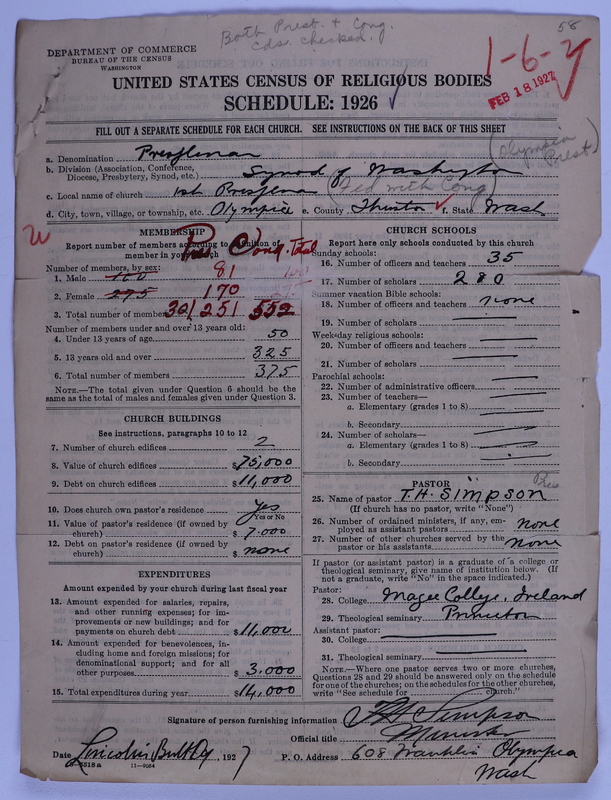 Both Prest. & Cong.
Cds. checked.
58
DEPARTMENT OF COMMERCE
BUREAU OF THE CENSUS
WASHINGTON
1-6-
FEB 18 1927
UNITED STATES CENSUS OF RELIGIOUS BODIES
SCHEDULE: 1926
FILL OUT A SEPARATE SCHEDULE FOR EACH CHURCH. SEE INSTRUCTIONS ON THE BACK OF THIS SHEET
(Olympia Prest.)
a. Denomination
b. Division (Association, Conference, Diocese, Presbytery, Synod, etc.) Synod of Washington
c. Local name of church 1st (Fed with Cong)
d. City, town, village, or township, etc. Olympia e. County Thurston f. State Wash
MEMBERSHIP
Report number of members according to definition of member in your church
Pres. Cong. Total
Number of members, by sex:
1. Male 150 81
2. Female 275 170
3. Total number of members 301 251 552
Number of members under and over 13 years old:
4. Under 13 years of age 50
5. 13 years old and over 325
6. Total number of members 375
NOTE.—The total given under Question 6 should be the same as the total of males and females given under Question 3.
CHURCH BUILDINGS
See instructions, paragraphs 10 to 12
7. Number of church edifices 2
8. Value of church edifices $75,000
9. Debt on church edifices $11,000
10. Does church own pastor's residence Yes
Yes or No
11. Value of pastor's residence (if owned by church) $7.000
12. Debt on pastor's residence (if owned by church) $none
EXPENDITURES
Amount expended by your church during last fiscal year
13. Amount expended for salaries, repairs, and other running expenses; for improvements or new buildings; and for payments on church debt $11,000
14. Amount expended for benevolences, including home and foreign missions; for denominational support; and for all other purposes $3.000
15. Total expenditures during year $14,000
CHURCH SCHOOLS
Report here only schools conducted by this church
Sunday schools:
16. Number of officers and teachers 35
17. Number of scholars 280
Summer vacation Bible schools:
18. Number of officers and teachers none
19. Number of scholars
Weekday religious schools:
20. Number of officers and teachers
21. Number of scholars
Parochial schools:
22. Number of administrative officers
23. Number of teachers—
a. Elementary (grades 1 to 8)
b. Secondary
24. Number of scholars—
a. Elementary (grades 1 to 8)
b. Secondary
PASTOR
25. Name of pastor T. H. Simpson
(If church has no pastor, write "None")
26. Number of ordained ministers, if any, employed as assistant pastors none
27. Number of other churches served by the pastor or his assistants none
If pastor (or assistant pastor) is a graduate of a college or theological seminary, give name of institution below. (If not a graduate, write "No" in the space indicated.)
Pastor:
28. College Magee College, Ireland
29. Theological seminary Princeton
Assistant pastor:
30. College
31. Theological seminary
NOTE.—Where one pastor serves two or more churches, Questions 28 and 29 should be answered only on the schedule for one of the churches; on the schedules for the other churches, write "See schedule for church."
Signature of person furnishing information T H Simpson
Official title Minister
Date Lincolns Birthday, 1927
P. O. Address 608 Franklin Olympia
Wash
8-5518a 11-9054